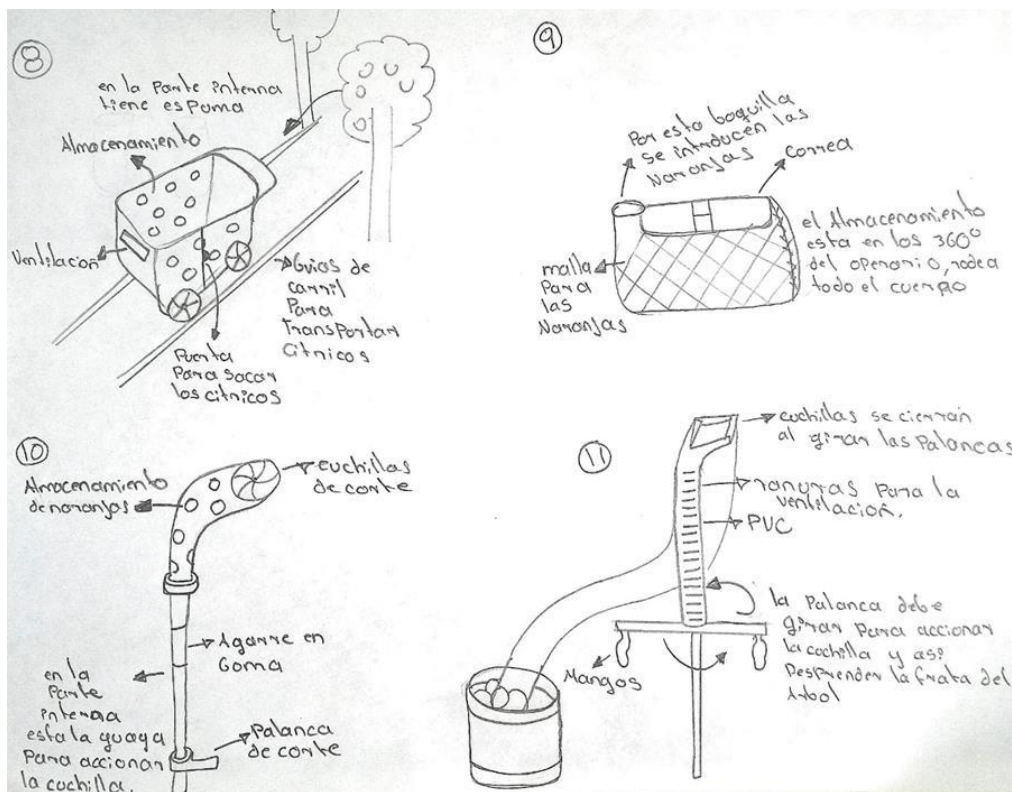 8
en la parte interna
tiene espuma
Almacenamiento
Ventilacion
Guias de
carril
Para
Transportar
Citricos
Puerta
Para sacar
los citricos
9
Por esta boquilla
se introducen las
Naranjas
Correa
malla
Para
las
Naranjas
el Almacenamiento
esta en los 360°
del operario, rodea
todo el cuerpo
10
Almacenamiento
de naranjas
cuchillas
de corte
Agarre en
Goma
en la
Parte
interna
esta la guaya
Para accionar
la cuchilla.
Palanca
de corte
11
cuchillas se cierran
al girar las Palancas
ranuras Para la
ventilación.
PVC
la Palanca debe
girar Para accionar
la cuchilla y asi
Desprender la fruta del
Arbol
Mangos